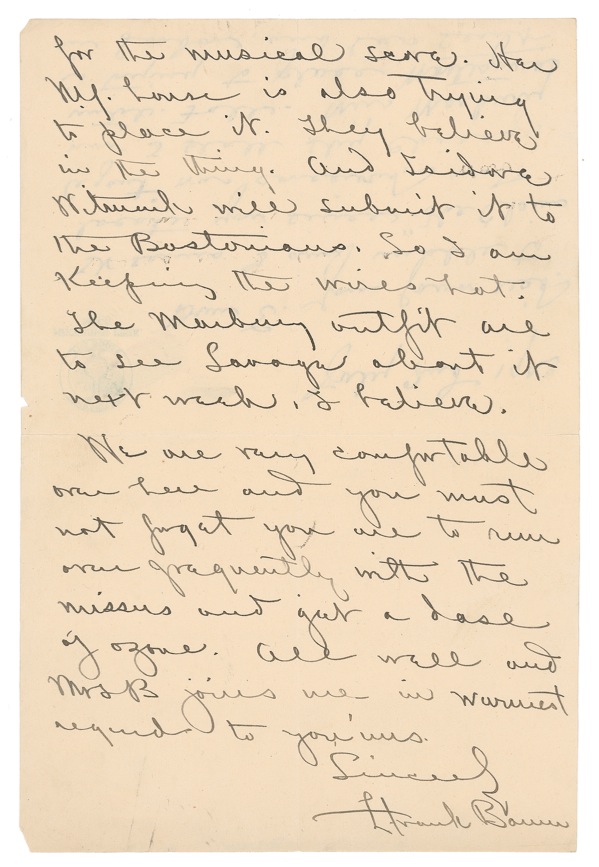 for the musical score. Her
N.Y. house is also trying
to place it. They believe
in the thing. And Isidore
Witmark will submit it to
the Bostonians. So I am
Keeping the wires hot.
The Marbury outfit are
to see Savage about it
next week, I believe.
We are very comfortable
over here and you must
not forget you are to run
over frequently with the
missus and get a dose
of ozone. All well and
Mrs B joins me in warmest
regards to you'uns.
Sincerely
L Frank Baum